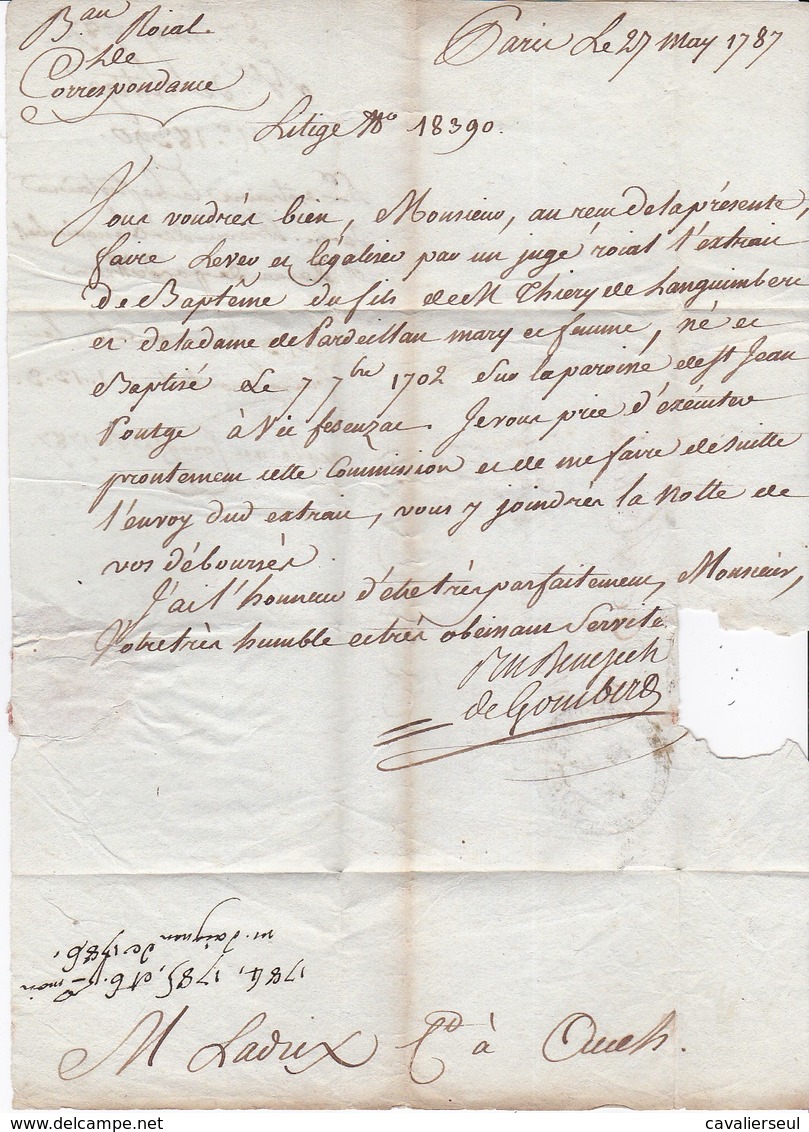 Bau Roial
de
Correspondance
Paris Le 27 may 1787
Litige No 18390.
Vous voudrés bien, Monsieur, au recu de la présente,
faire Lever et légaliser par un juge roial l'extrait
de Baptême du fils de M Thiery de Languimberc
et de la dame de Pardeillan mary et femme, né et
Baptisé Le 7 7bre 1702 Sur la paroisse de St Jean
Poutge à Vic fesenzac. Je vous prie d'exécuter
prontement cette Commission et de me faire de suitte
l'envoy dud extrait, vous y joindrés la Notte de
vos déboursés.
J'ai l'honneur d'être très parfaitement, Monsieur,
Votre très humble et très obeissant Servite
Benezech
de Gombert
1784, 1785, et 6.
de 1786,
M Ladrix Cd à Auch.
cavalierseul